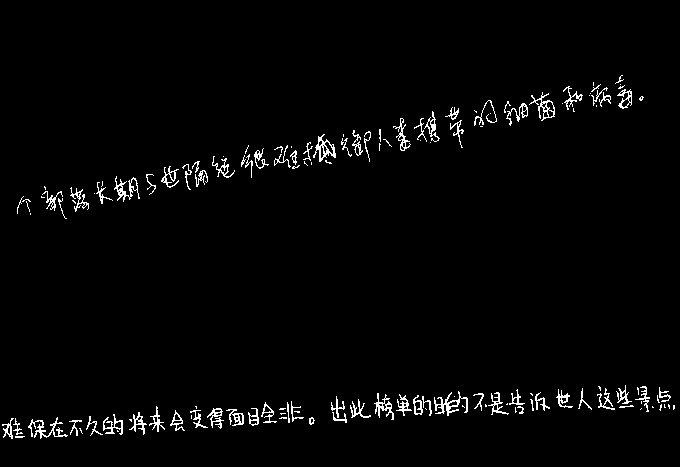 个部落长期与世隔绝很难抵御人类携带的细菌和病毒。
难保在不久的将来会变得面目全非。出此榜单的目的不是告诉世人这些景点,